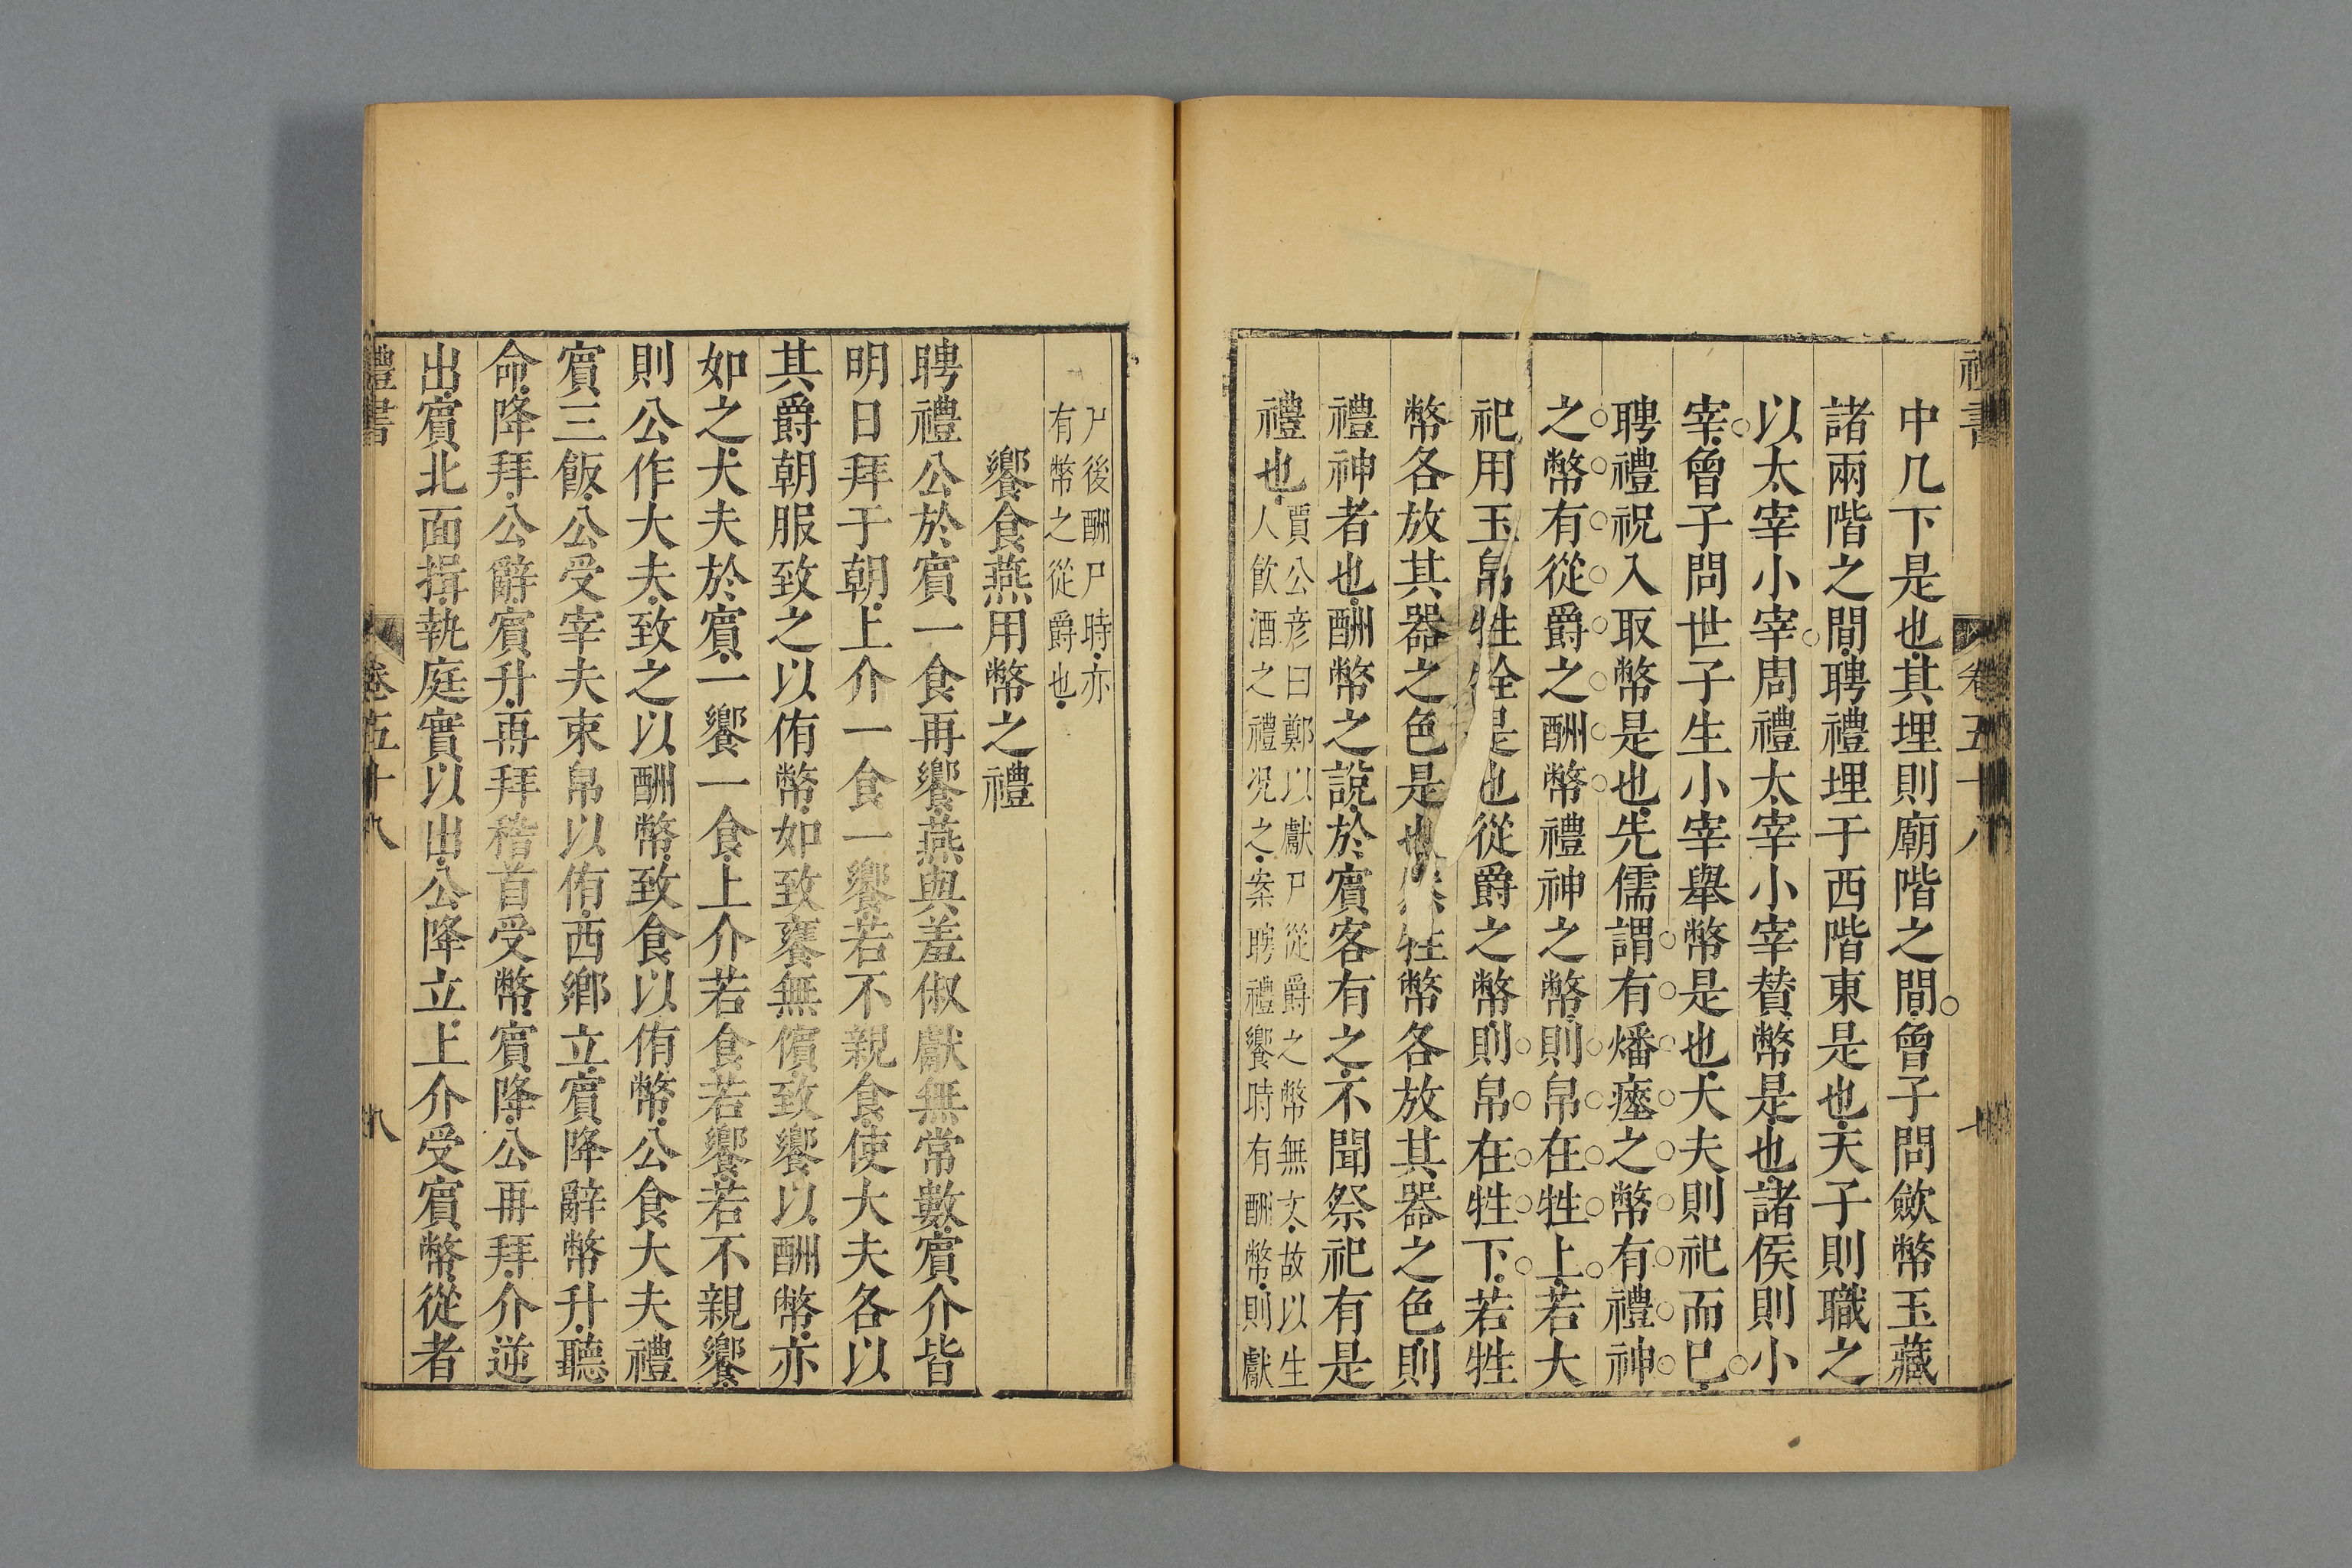 中几下是也其埋則廟階之間曾子問歛幣玉藏
諸兩階之間聘禮埋于西階東是也天子則職之
以太宰小宰周禮太宰小宰贊幣是也諸侯則小
宰曾子問世子生小宰舉幣是也大夫則祀而已
聘禮祝入取幣是也先儒謂有燔瘞之幣有禮神
之幣有從爵之酬幣禮神之幣則帛在牲上若大
祀用玉帛牲牷是也從爵之幣則帛在牲下若牲
幣各放其器之色是也牲幣各放其器之色則
禮神者也酬幣之說於賓客有之不聞祭祀有是
禮也
賈公彦曰鄭以獻尸從爵之幣無文故以生
人飲酒之禮況之案聘禮饗時有酬幣則獻
尸後酬尸時亦
有幣之從爵也
饗食燕用幣之禮
聘禮公於賓一食再饗燕與羞俶獻無常數賓介皆
明日拜于朝上介一食一饗若不親食使大夫各以
其爵朝服致之以侑幣如致饔無儐致饗以酬幣亦
如之大夫於賓一饗一食上介若食若饗若不親饗
則公作大夫致之以酬幣致食以侑幣公食大夫禮
賓三飯公受宰夫束帛以侑西鄉立賓降辭幣升聽
命降拜公辭賓升再拜稽首受幣賓降公再拜介逆
出賓北面揖執庭實以出公降立上介受賓幣從者
禮書
卷五十八
八